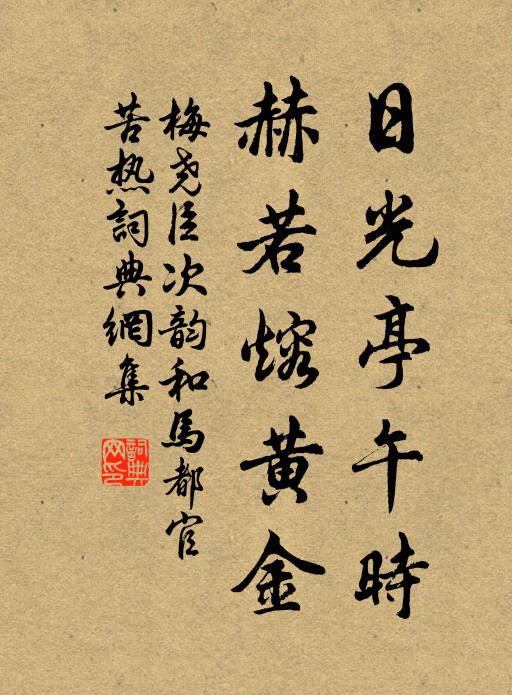 日光亭午時
赫若熔黄金
梅尧臣次韵和馬都官
苦热詞典網集
詞典网印